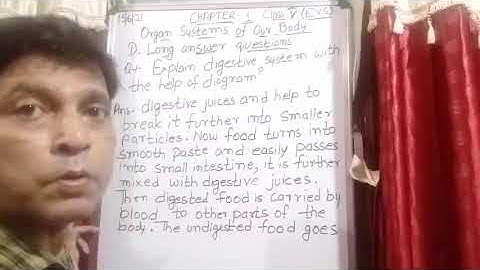 15/6/21 CHAPTER 1 Class V (EVS)
Organ Systems of Our Body
D. Long answer questions
Q1. Explain digestive system with
the help of diagram?
Ans. digestive juices and help to
break it further into smaller
particles. Now food turns into
smooth paste and easily passes
into small intestine, it is further
mixed with digestive juices.
Then digested food is carried by
blood to other parts of the
body. The undigested food goes